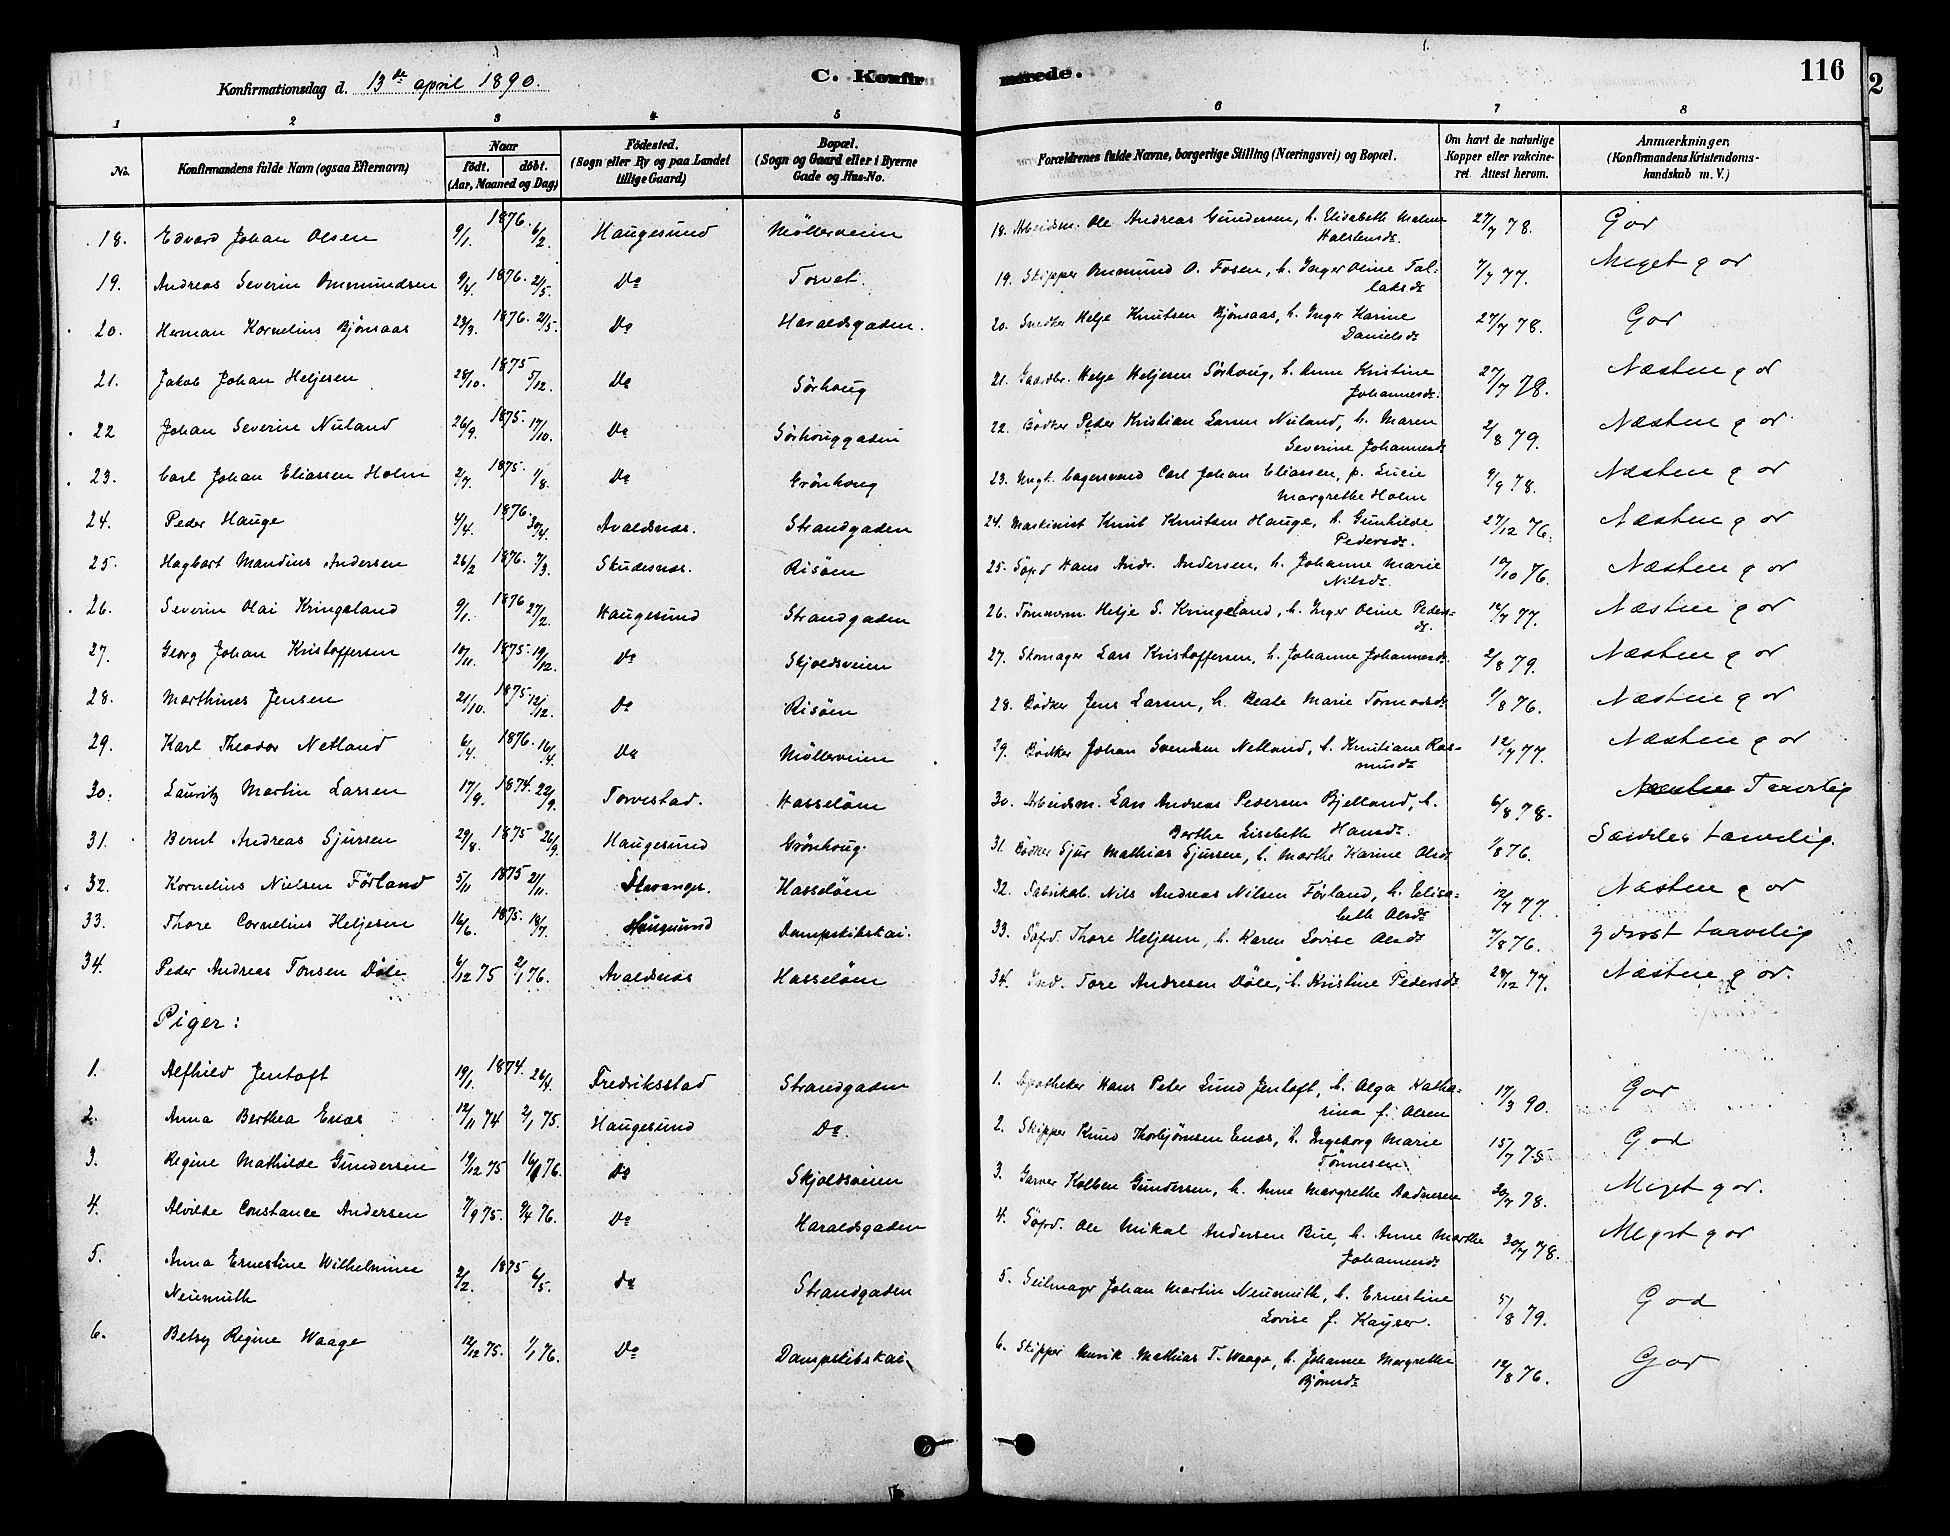 Konfirmationsdag d. 13de april 1890.
C. Konfirmerede.
116
2
1 2 3 4 5 6 7 8
No.
Konfirmandens fulde Navn (ogsaa Efternavn)
Naar
födt. döbt.
(Aar, Maaned og Dag)
Födested.
(Sogn eller By og paa Landet
tillige Gaard)
Bopæl.
(Sogn og Gaard eller i Byerne
Gade og Hus-No.
Forældrenes fulde Navne, borgerlige Stilling (Næringsvei) og Bopæl.
Om havt de naturlige
Kopper eller vakcine-
ret. Attest herom.
Anmærkninger,
(Konfirmandens Kristendoms-
kundskab m. V.)
18. Edvard Johan Olsen 9/1. 1876. 6/2. Haugesund Möllerveien 18. Arbeidsm. Ole Andreas Gundersen, h. Elisabeth Malene Halstensdr. 27/7 78. God
19. Andreas Severin Ommundsen 9/4. 1876. 21/5. Do Torvet. 19. Skipper Ommund O. Fosen, h. Inger Oline Tollaksdr 7/7 77. Meget god
20. Herman Kornelius Björnaas 23/3. 1876. 21/5. Do Haraldsgaden. 20. Snedker Helje Knutsen Björnaas, h. Inger Karine Danielsdr 27/7 78. God
21. Jakob Johan Heljesen 28/10. 1875 5/12. Do Sörhoug 21. Gaardbr. Helje Heljesen Sörhoug, h. Anne Kristine Johannesdr. 27/7 78. Næsten god
22 Johan Severin Nuland 26/9. 1875. 17/10. Do Sörhouggaden 22. Bödker Peder Kristian Larsen Nuland, h. Maren Severine Johannesdr 2/8 79. Næsten god
23. Carl Johan Eliassen Holm 2/7. 1875. 1/8. Do Grönhoug 23. Ungk. bagersvend Carl Johan Eliassen, p. Lucie Margrethe Holm 9/9 78. Næsten god
24. Peder Hauge 4/4. 1876. 30/4. Avaldsnæs. Strandgaden 24. Maskinist Knut Knutsen Hauge, h. Gunhilde Pedersdr. 27/12 76. Næsten god
25. Hagbart Mandius Andersen 26/2 1876. 7/3. Skudesnæs. Risöen 25. Söfd Hans Andr. Andersen, h. Johanne Marie Nilsdr. 10/10 76. Næsten god
26. Severin Olai Kringeland 9/1. 1876 27/2. Haugesund Strandgaden 26. Tömmerm. Helje S. Kringeland, h. Inger Oline Pedersdr. 12/7 77. Næsten god
27. Georg Johan Kristoffersen 10/11. 1875. 19/12. Do Skjoldsveien 27. Skomager Lars Kristoffersen, h. Johanne Johannesdr. 2/8 79. Næsten god
28. Marthines Jensen 21/10. 1875. 12/12. Do Risöen 28. Bödker Jens Larsen, h. Beate Marie Tormodsdr 1/8 76. Næsten god
29. Karl Theodor Netland 6/4. 1876. 16/4. Do Möllerveien 29. Bödker Johan Svendsen Netland, h. Knutiane Rasmusdr 12/7 77. Næsten god
30. Lauritz Martin Larsen 17/9. 1874. 22/9. Torvestad. Hasselöen 30. Arbeidsm. Lars Andreas Pedersen Bjelland, h. Berthe Lisebeth Hansdr. 6/8 78. Næsten Tarvelig
31. Bernt Andreas Sjursen 29/8. 1875 26/9. Haugesund Grönhoug. 31. Bödker Sjur Mathias Sjursen, h. Marthe Karine Olsdr 1/8 76. Særdeles tarvelig.
32. Kornelius Nielsen Förland 5/11 1875 21/11. Stavanger. Hasselöen 32. Fabrikarb. Nils Andreas Nilsen Förland, h. Elisabeth Olsdr 12/7 77. Næsten god
33. Thore Cornelius Heljesen 16/6. 1875. 18/7. Haugesund Dampskibskai. 33. Söfd. Thore Heljesen, h. Karen Lovise Olsdr 7/8 76. Yderst tarvelig
34. Peder Andreas Tonsen Döle 6/12 75 2/1 76. Avaldsnæs Hasselöen 34. Ind. Tore Andresen Döle, h. Kristine Pedersdr 29/12 77. Næsten god.
Piger:
1. Alfhild Jentoft 19/1. 1874. 26/4. Fredriksstad Strandgaden 1. Apotheker Hans Peter Lund Jentoft, h. Olga Katharina f. Olsen 17/3 90. God
2. Anna Berthea Enæs 12/11 74 2/1 75. Haugesund Do. 2. Skipper Knud Thorbjörnsen Enæs, h. Ingeborg Marie Tönnesen 15/7 75 God
3. Regine Mathilde Gundersen 19/12 75 16/1 76. Do Skjoldsveien 3. Garver Kolben Gundersen, h. Anne Margrethe Aadnesen 30/7 78. Meget god.
4. Alvilde Constance Andersen 7/9 75. 9/4 76. Do Haraldsgaden 4. Söfd. Ole Mikal Andersen Bue, h. Anne Marthe Johannesdr 30/7 78. Meget god
5. Anna Ernestine Wilhelmine Neumuth 2/2. 1875 6/5. Do Strandgaden 5. Seilmager Johan Martin Neumuth, h. Ernestine Lovise f. Kayser. 5/8 79. God
6. Betsy Regine Waage 12/12 75. 1/1 76. Do Dampskibskai. 6. Skipper Henrik Mathias T. Waage, h. Johanne Margrethe Björnsdr 12/8 76. God